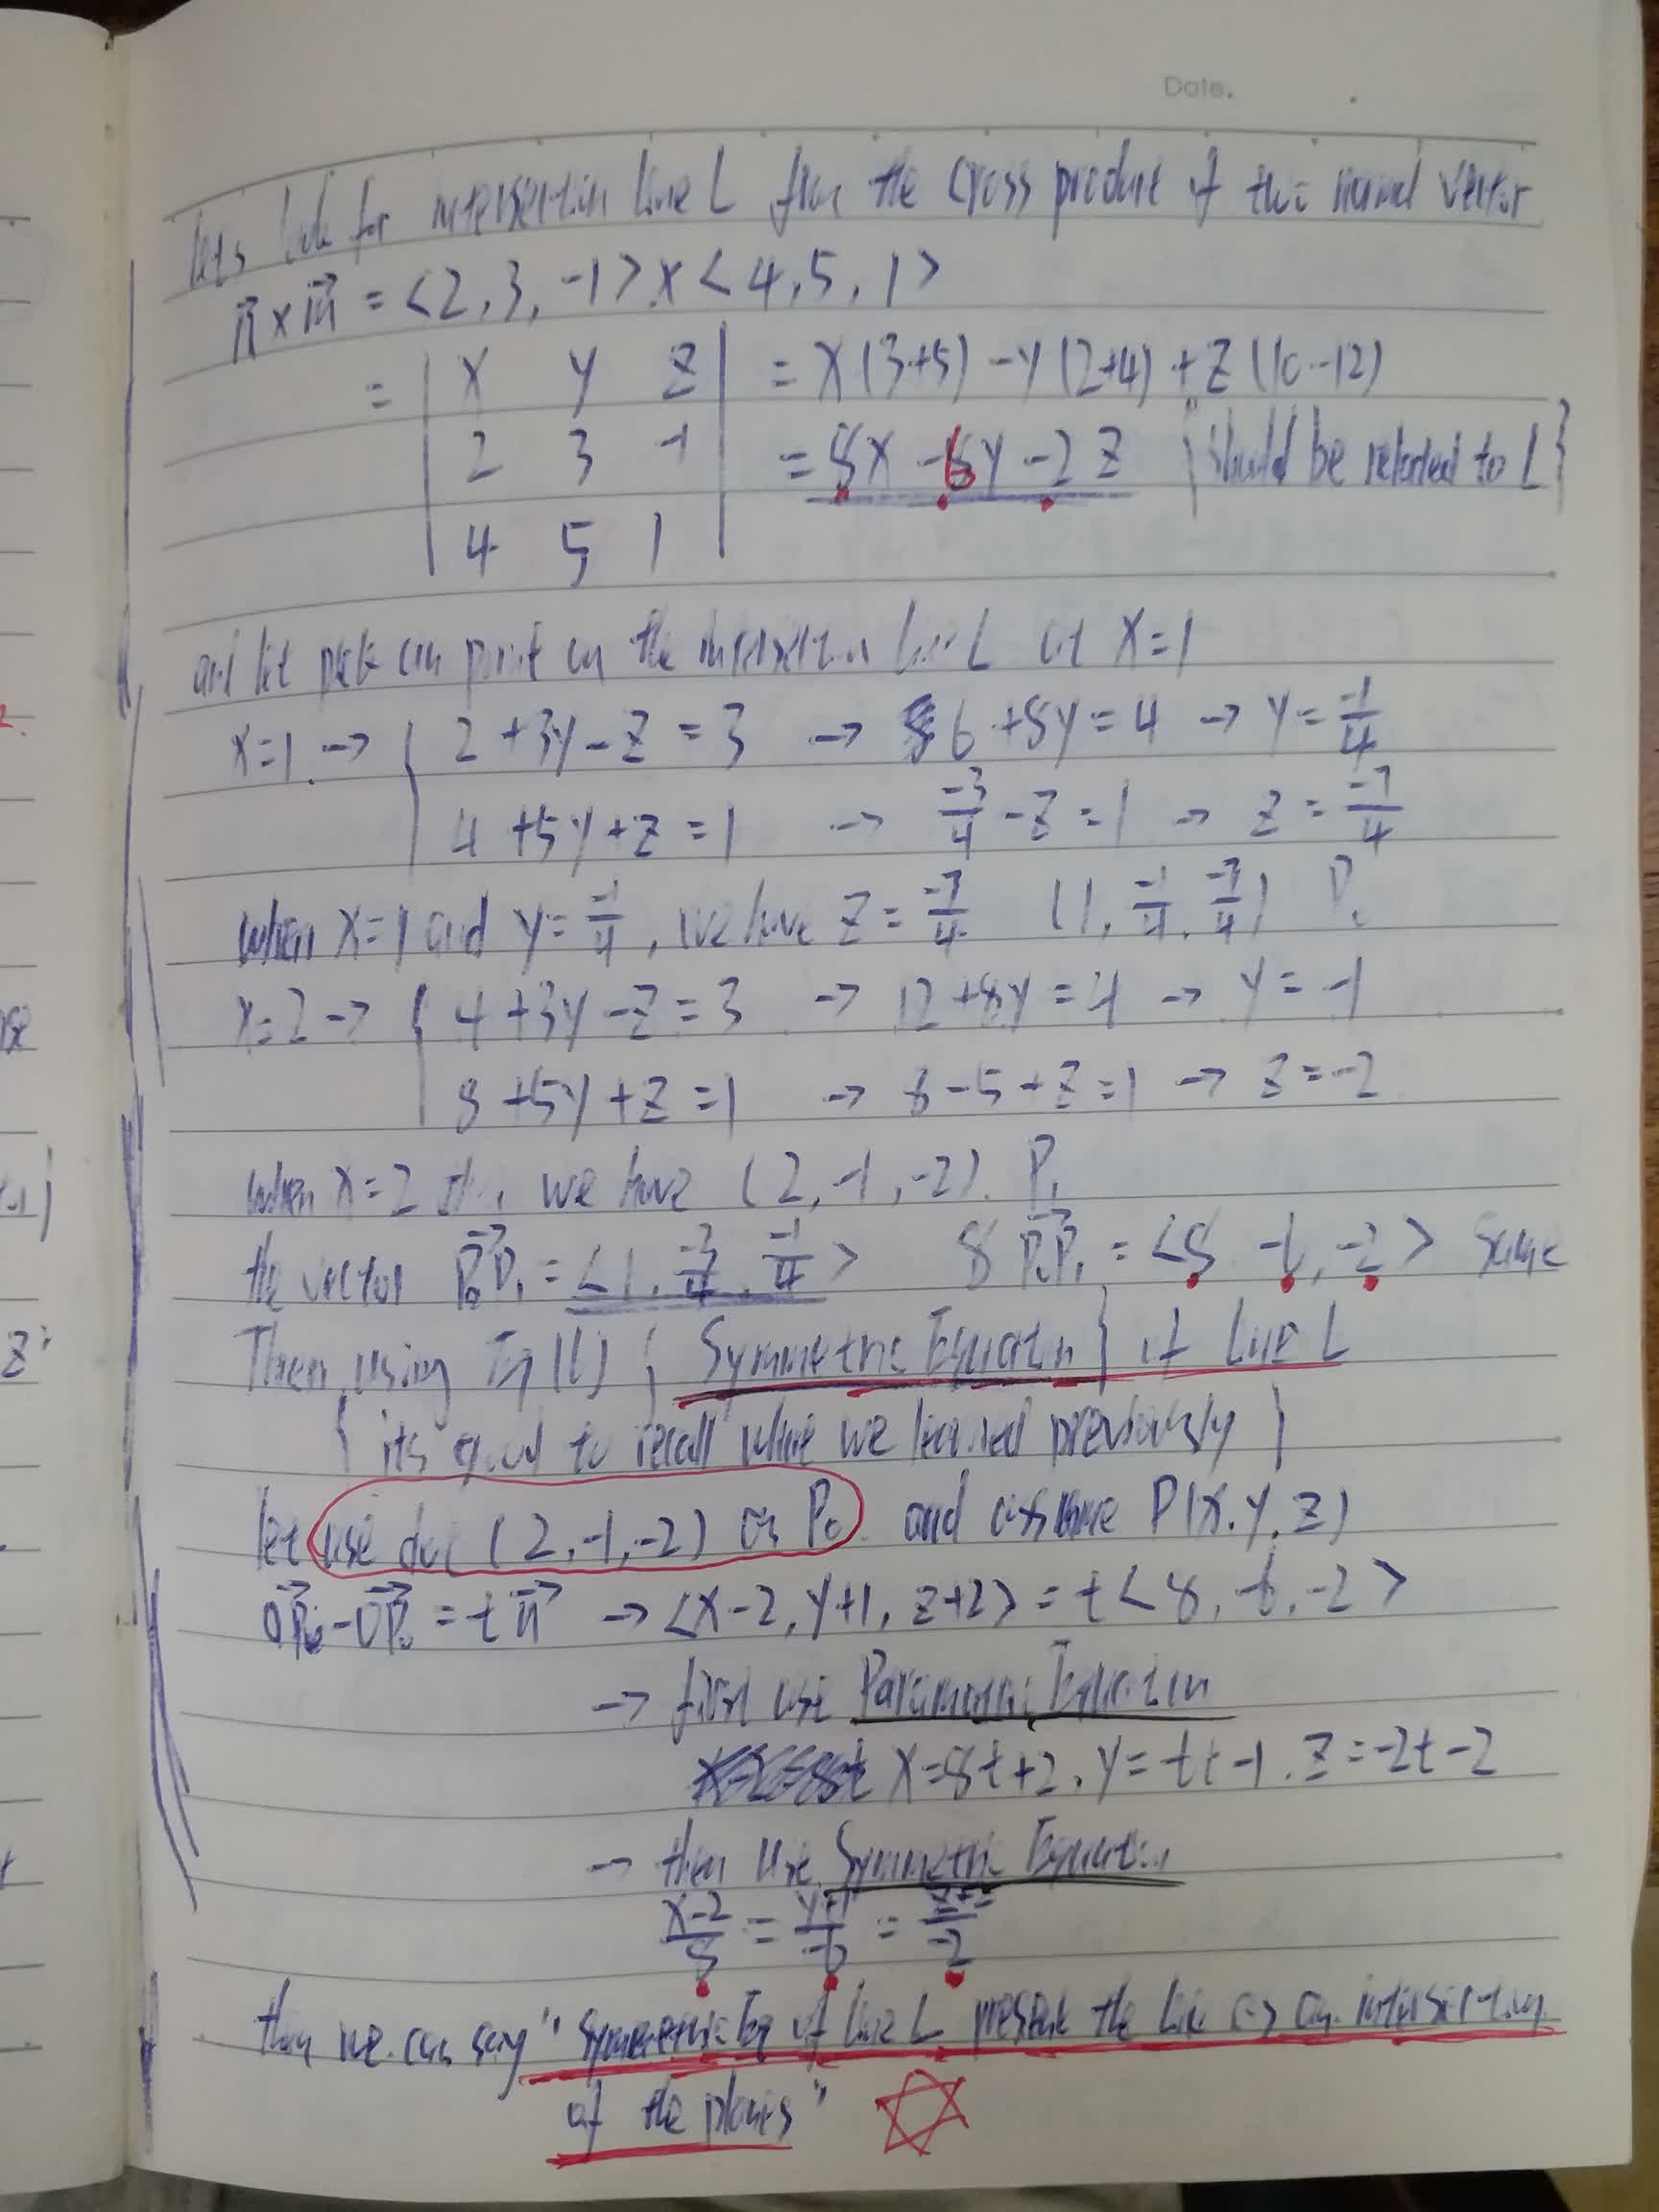 Date.
lets look for intersection line L from the cross product of the normal vector
n⃗ × m⃗ = <2, 3, -1> x <4, 5, 1>
= | x y z | = x(3+5) - y(2+4) + z(10-12)
| 2 3 -1 | = 8x - 6y - 2z {should be related to L}
| 4 5 1 |
and let pick an point on the intersection line L at x=1
x=1 → { 2+3y-z=3 → 6+8y=4 → y=-1/4
4+5y+z=1 → -3/4 - z = 1 → z = -7/4
when x=1 and y=-1/4, we have z=-7/4 (1, -1/4, -7/4) P₀
x=2 → { 4+3y-z=3 → 12+8y=4 → y=-1
8+5y+z=1 → 8-5+z=1 → z=-2
when x=2 we have (2,-1,-2). P₁
the vector P₀P₁ = <1, -3/4, -1/4> 8 P₀P₁ = <8, -6, -2> same
Then using Eq(6) { Symmetric Equation } of Line L
{ its good to recall what we learned previously }
let use (2,-1,-2) as P₀ and assume P(x,y,z)
OP - OP₀ = t n⃗ → <x-2, y+1, z+2> = t<8, -6, -2>
→ first use Parametric Equation
x=8t+2, y=tt-1, z=-2t-2
→ then use Symmetric Equation
x-2/8 = y+1/-6 = z+2/-2
then we can say "Symmetric Eq of line L present the line as an intersection
of the planes"